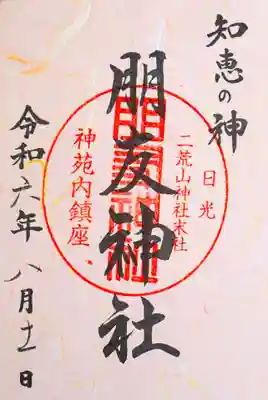 知恵の神
日光
二荒山神社末社
朋友神社
神苑内鎮座、
令和六年 八月十一日